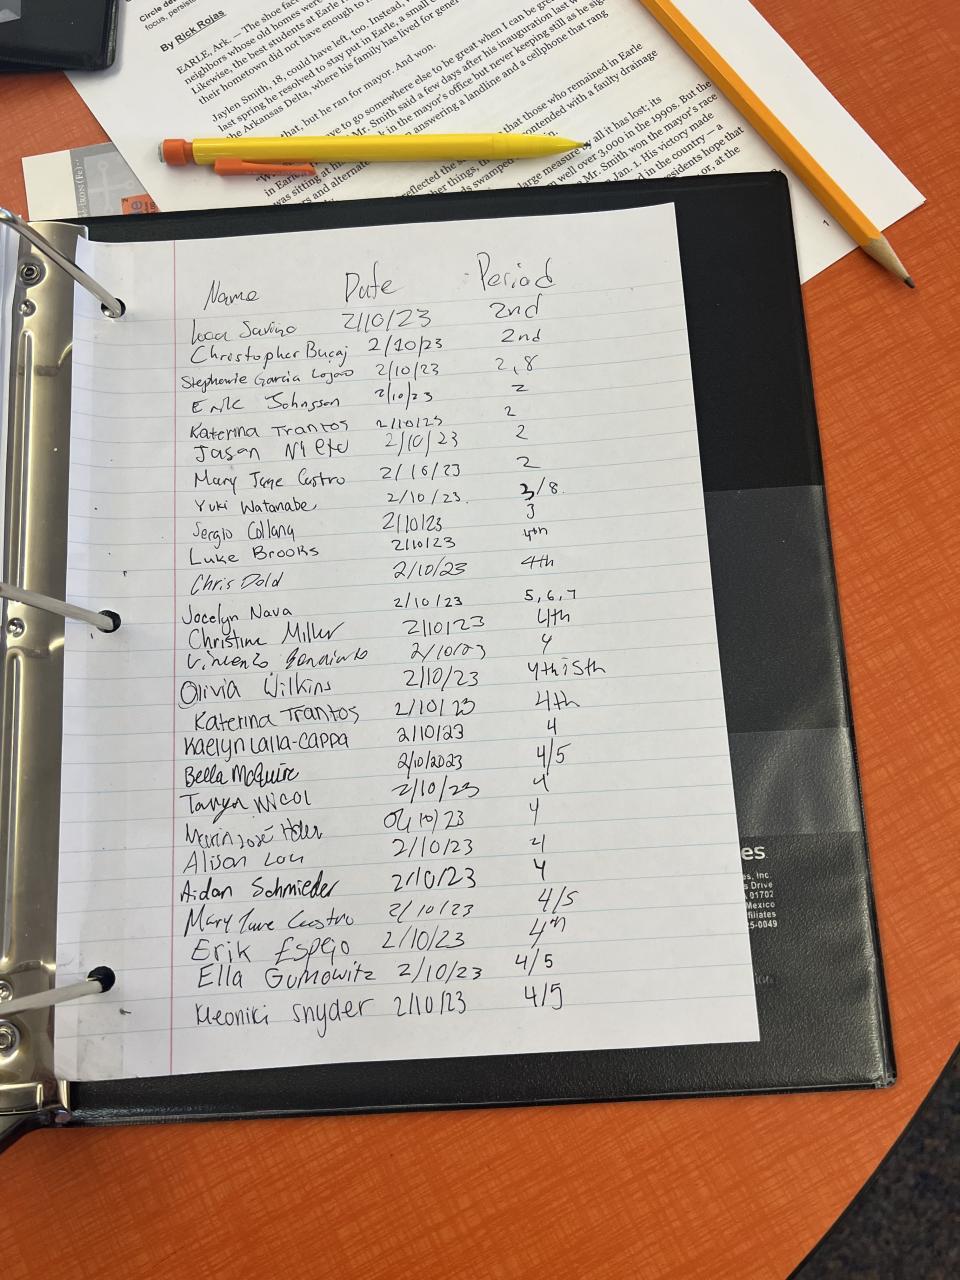 Circle de
focus, persis
By Rick Rojas
EARLE, Ark. — The shoe fact
neighbors whose old homes were
Likewise, the best students at Earle H
their hometown did not have enough to
Jaylen Smith, 18, could have left, too. Instead,
last spring he resolved to stay put in Earle, a small c
the Arkansas Delta, where his family has lived for gener
that, but he ran for mayor. And won.
ve to go somewhere else to be great when I can be grea
Mr. Smith said a few days after his inauguration last w
in Earle
was sitting at his
k in the mayor's office but never keeping still as he sign
answering a landline and a cellphone that rang
rs and alternate
reflected the
that those who remained in Earle
her things, th
contended with a faulty drainage
ds swamped
large measure
all it has lost; its
m well over 3,000 in the 1990s. But the
Mr. Smith won the mayor's race
Jan. 1. His victory made
d in the country — a
sidents hope that
or, at the
1
Name Date Period
Luca Savino 2/10/23 2nd
Christopher Bucaj 2/10/23 2nd
Stephanie Garcia Lojano 2/10/23 2,8
Erik Johnsson 2/10/23 2
Katerina Trantos 2/10/23 2
Jason Nieto 2/10/23 2
Mary Jane Castro 2/10/23 2
Yuki Watanabe 2/10/23. 3/8.
Sergio Collana 2/10/23 3
Luke Brooks 2/10/23 4th
Chris Dold 2/10/23 4th
Jocelyn Nava 2/10/23 5,6,7
Christine Miller 2/10/23 4th
Vincenzo 2/10/23 4
Olivia Wilkins 2/10/23 4th 5th
Katerina Trantos 2/10/23 4th
Kaelyn Lalla-Cappa 2/10/23 4
Bella McGuire 2/10/2023 4/5
Tanya Nicol 2/10/23 4
José 02/10/23 4
Alison Lou 2/10/23 4
Aidan Schmieder 2/10/23 4
Mary Jane Castro 2/10/23 4/5
Erik Espejo 2/10/23 4th
Ella Gumowitz 2/10/23 4/5
Kleoniki Snyder 2/10/23 4/5
es
es, Inc.
s Drive
01702
Mexico
filiates
5-0049